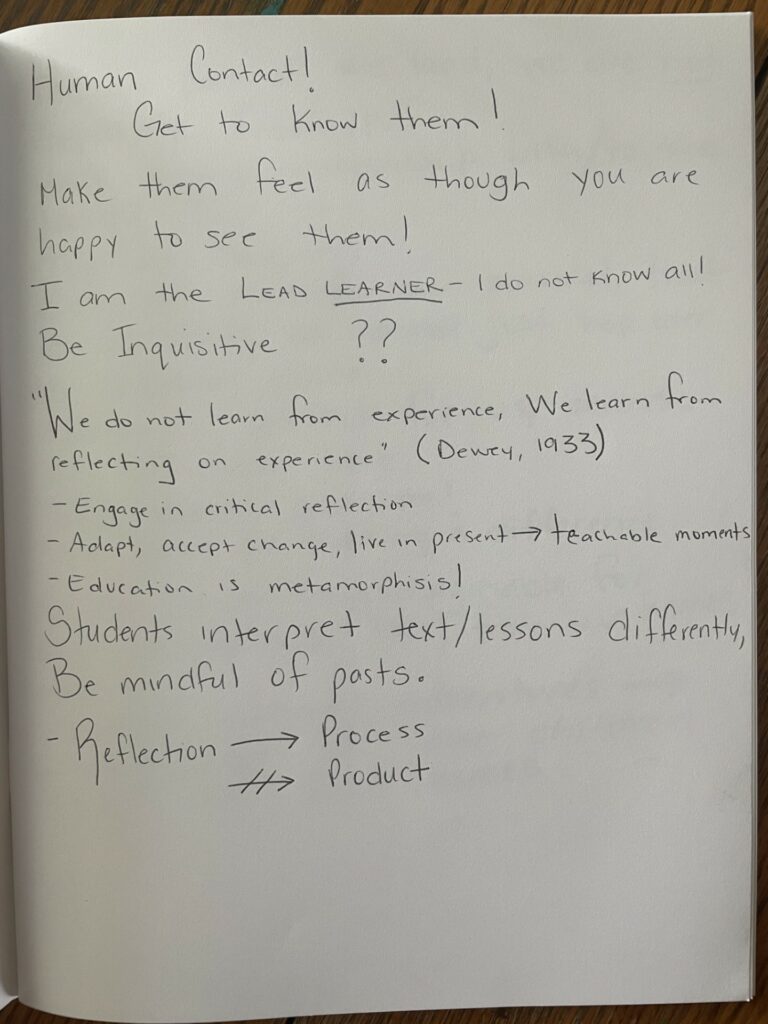 Human Contact!
Get to Know them!
Make them feel as though you are
happy to see them!
I am the LEAD LEARNER - I do not know all!
Be Inquisitive ??
"We do not learn from experience, We learn from
reflecting on experience" (Dewey, 1933)
- Engage in critical reflection
- Adapt, accept change, live in present → teachable moments
- Education is metamorphisis!
Students interpret text/lessons differently,
Be mindful of pasts.
- Reflection → Process
⇸ Product